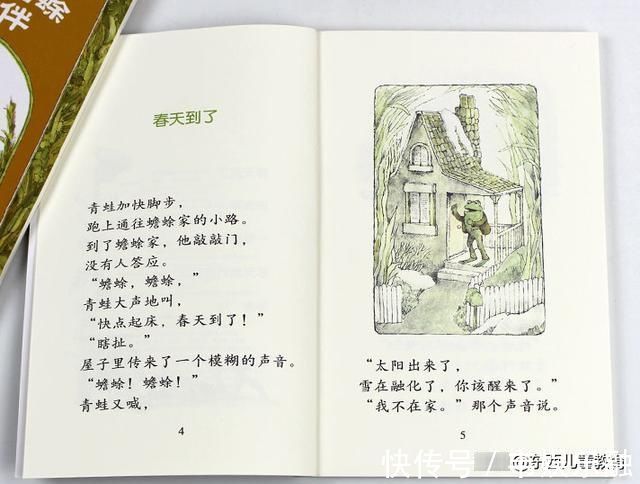 蜍
伴
春天到了
青蛙加快脚步，
跑上通往蟾蜍家的小路。
到了蟾蜍家，他敲敲门，
没有人答应。
“蟾蜍，蟾蜍，”
青蛙大声地叫，
“快点起床，春天到了！”
“瞎扯。”
屋子里传来了一个模糊的声音。
“蟾蜍！蟾蜍！”
青蛙又喊，
4
“太阳出来了，
雪在融化了，你该醒来了。”
“我不在家。”那个声音说。
5
快传号／